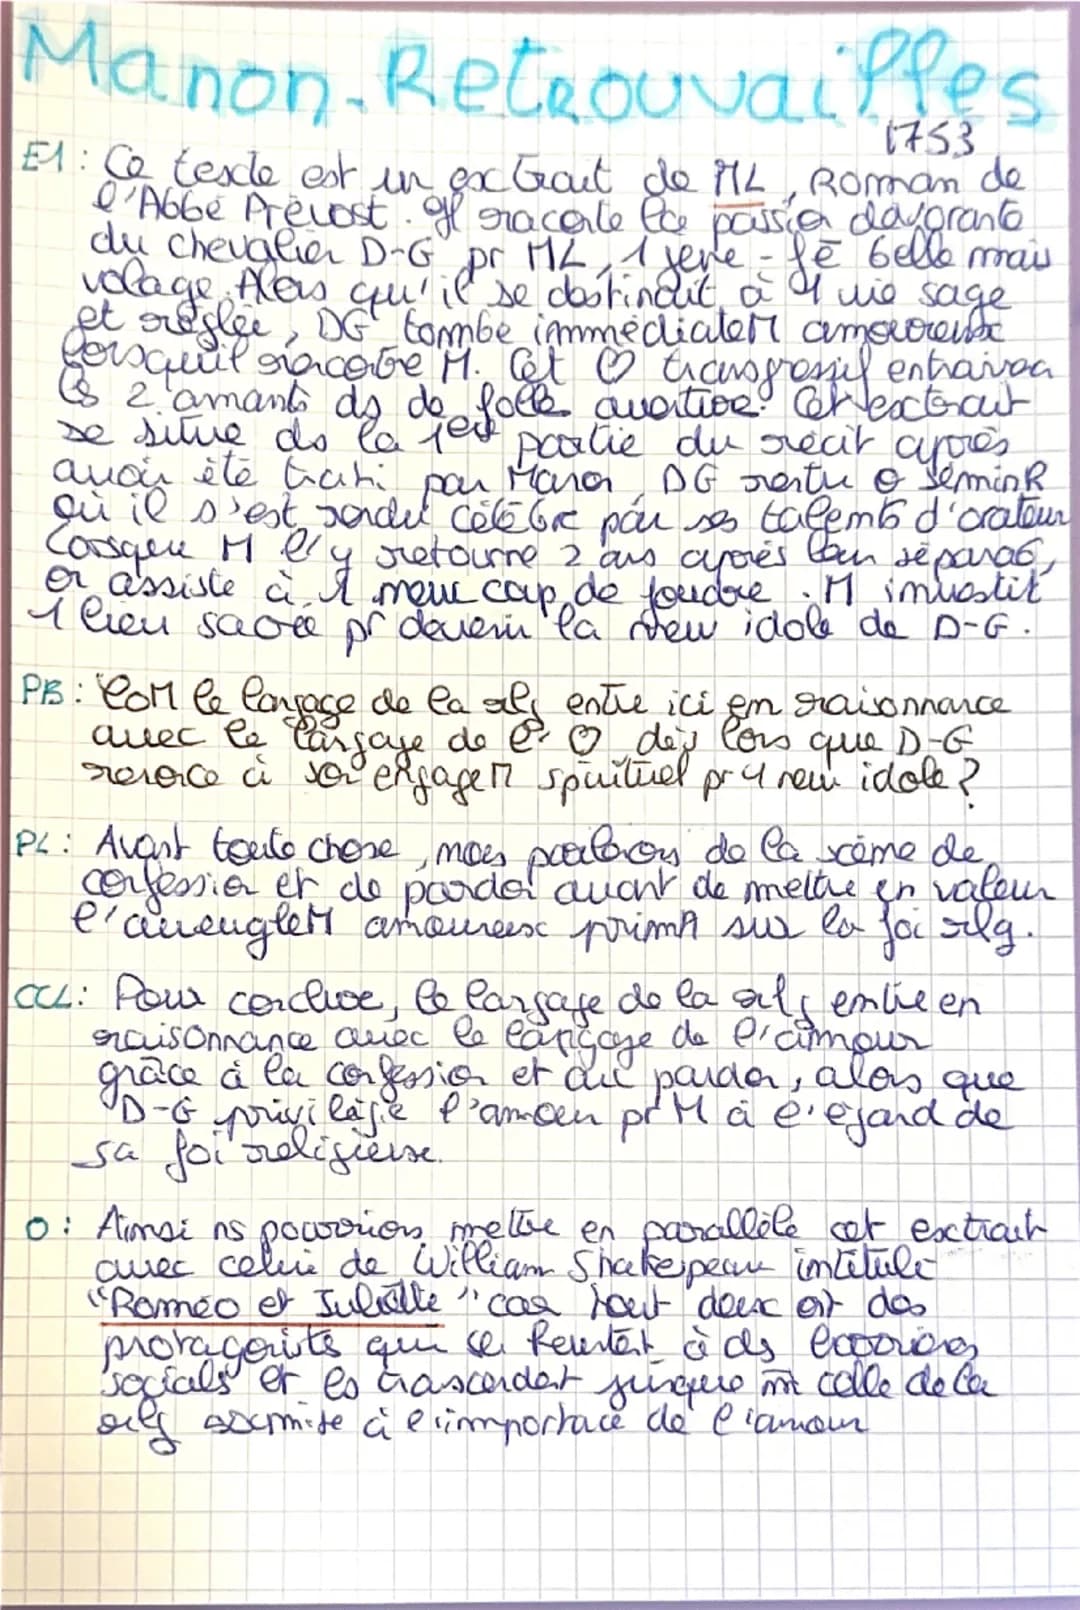 Manon. Retrouvailles
1753
E1 : Ce texte est un extrait de ML, Roman de
l'Abbé Prévost. Il raconte la passion dévorante
du chevalier D-G pr ML, 1 jeune-fe belle mais
volage. Alors qu'il se destinait à 1 vie sage
et réglée, DG tombe immédiateM amoureux
lorsqu'il rencontre M. Cet ♡ transgressif entrainera
les 2 amants ds de folle aventure. Cet extrait
se situe ds la 1ere partie du récit après
avoir été trahi par Manon, DG rentre o séminR
où il s'est rendu célèbre par ses talents d'orateur
Lorsque M l'y retourne 2 ans après leur séparat°,
on assiste à 1 nouv coup de foudre. M investit
1 lieu sacré pr devenir la new idole de D-G.
PB : Com le langage de la relg entre ici en raisonnance
avec le langage de l' ♡ dès lors que D-G
renonce à son engageM spirituel pr 1 new idole ?
PL : Avant toute chose, nous parlerons de la scème de
confession et de pardon avant de mettre en valeur
l'aveugleM amoureux primA sur la foi relg.
CCL : Pour conclure, le langage de la relg entre en
raisonnance avec le langage de l'amour
grâce à la confession et au pardon, alors que
D-G privilégie l'amour pr M à l'égard de
sa foi religieuse.
O : Ainsi ns pourrions mettre en parallèle cet extrait
avec celui de William Shakespeare intitulé
"Roméo et Juliette" car tout deux ont des
protagonists qui se heurtent à ds
socials et les trascendent jusque mm celle de la
relg soumise à l'importace de l'amour